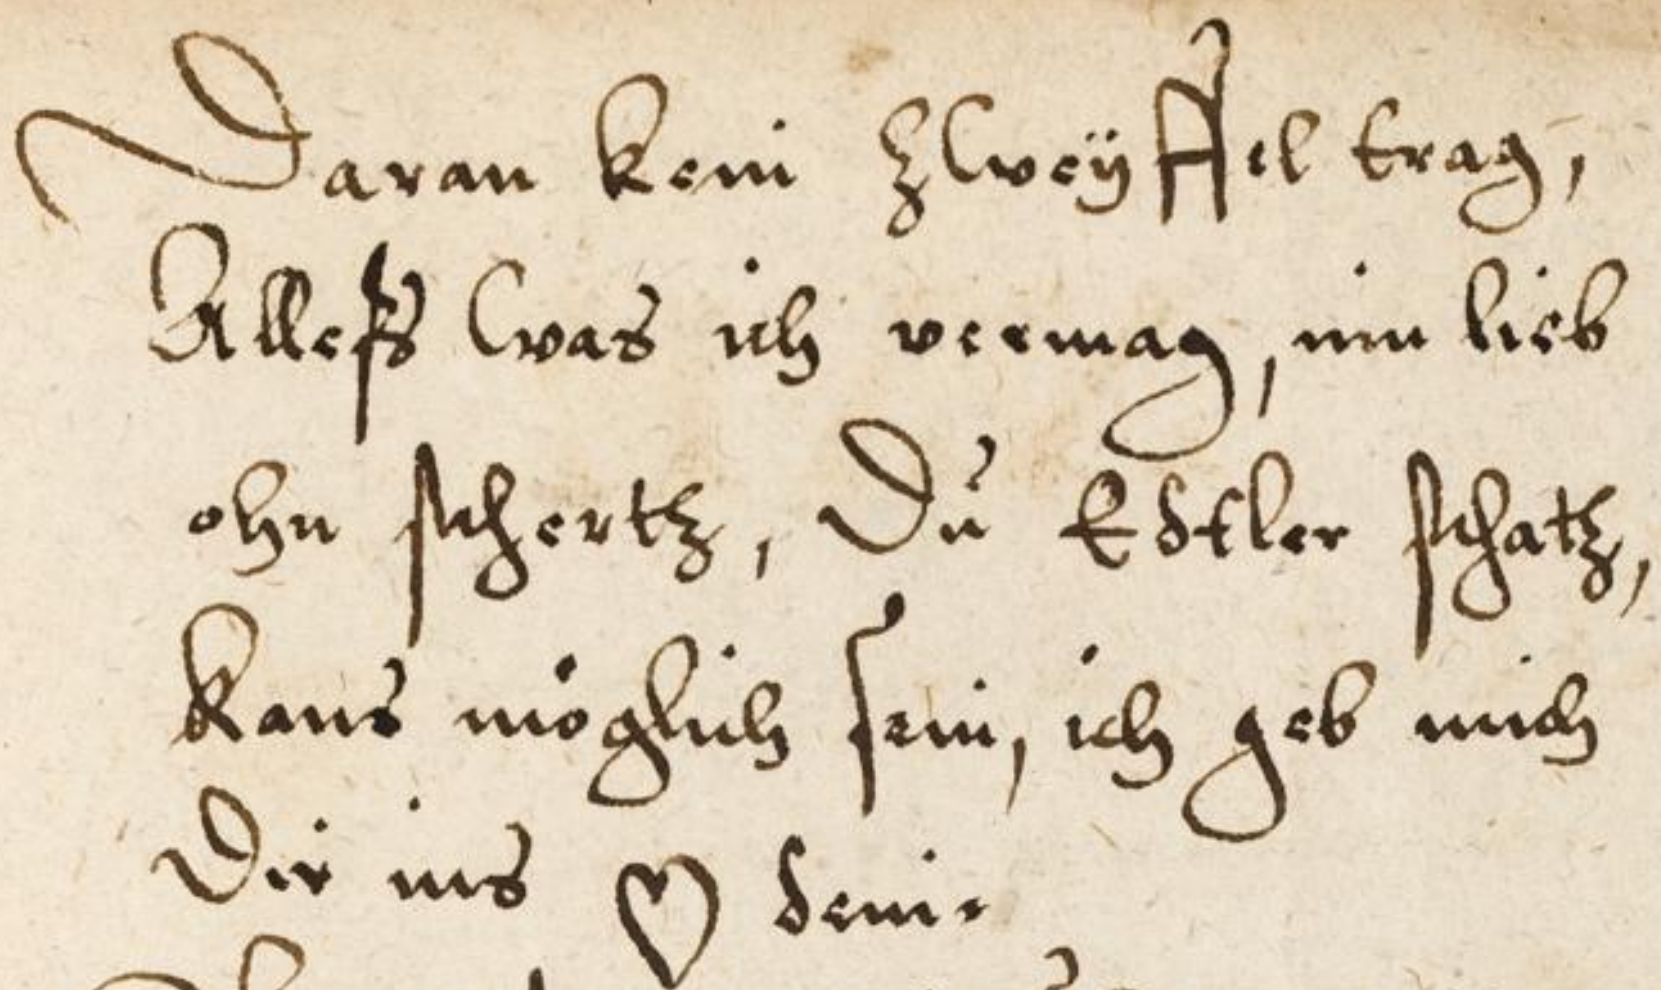 Daran kein Zweÿffel trag,
Alleß was ich vermag, nim lieb
ohn schertz, Du Edtler schatz,
kans möglich sein, ich geb mich
Dir ins ♡ dein.